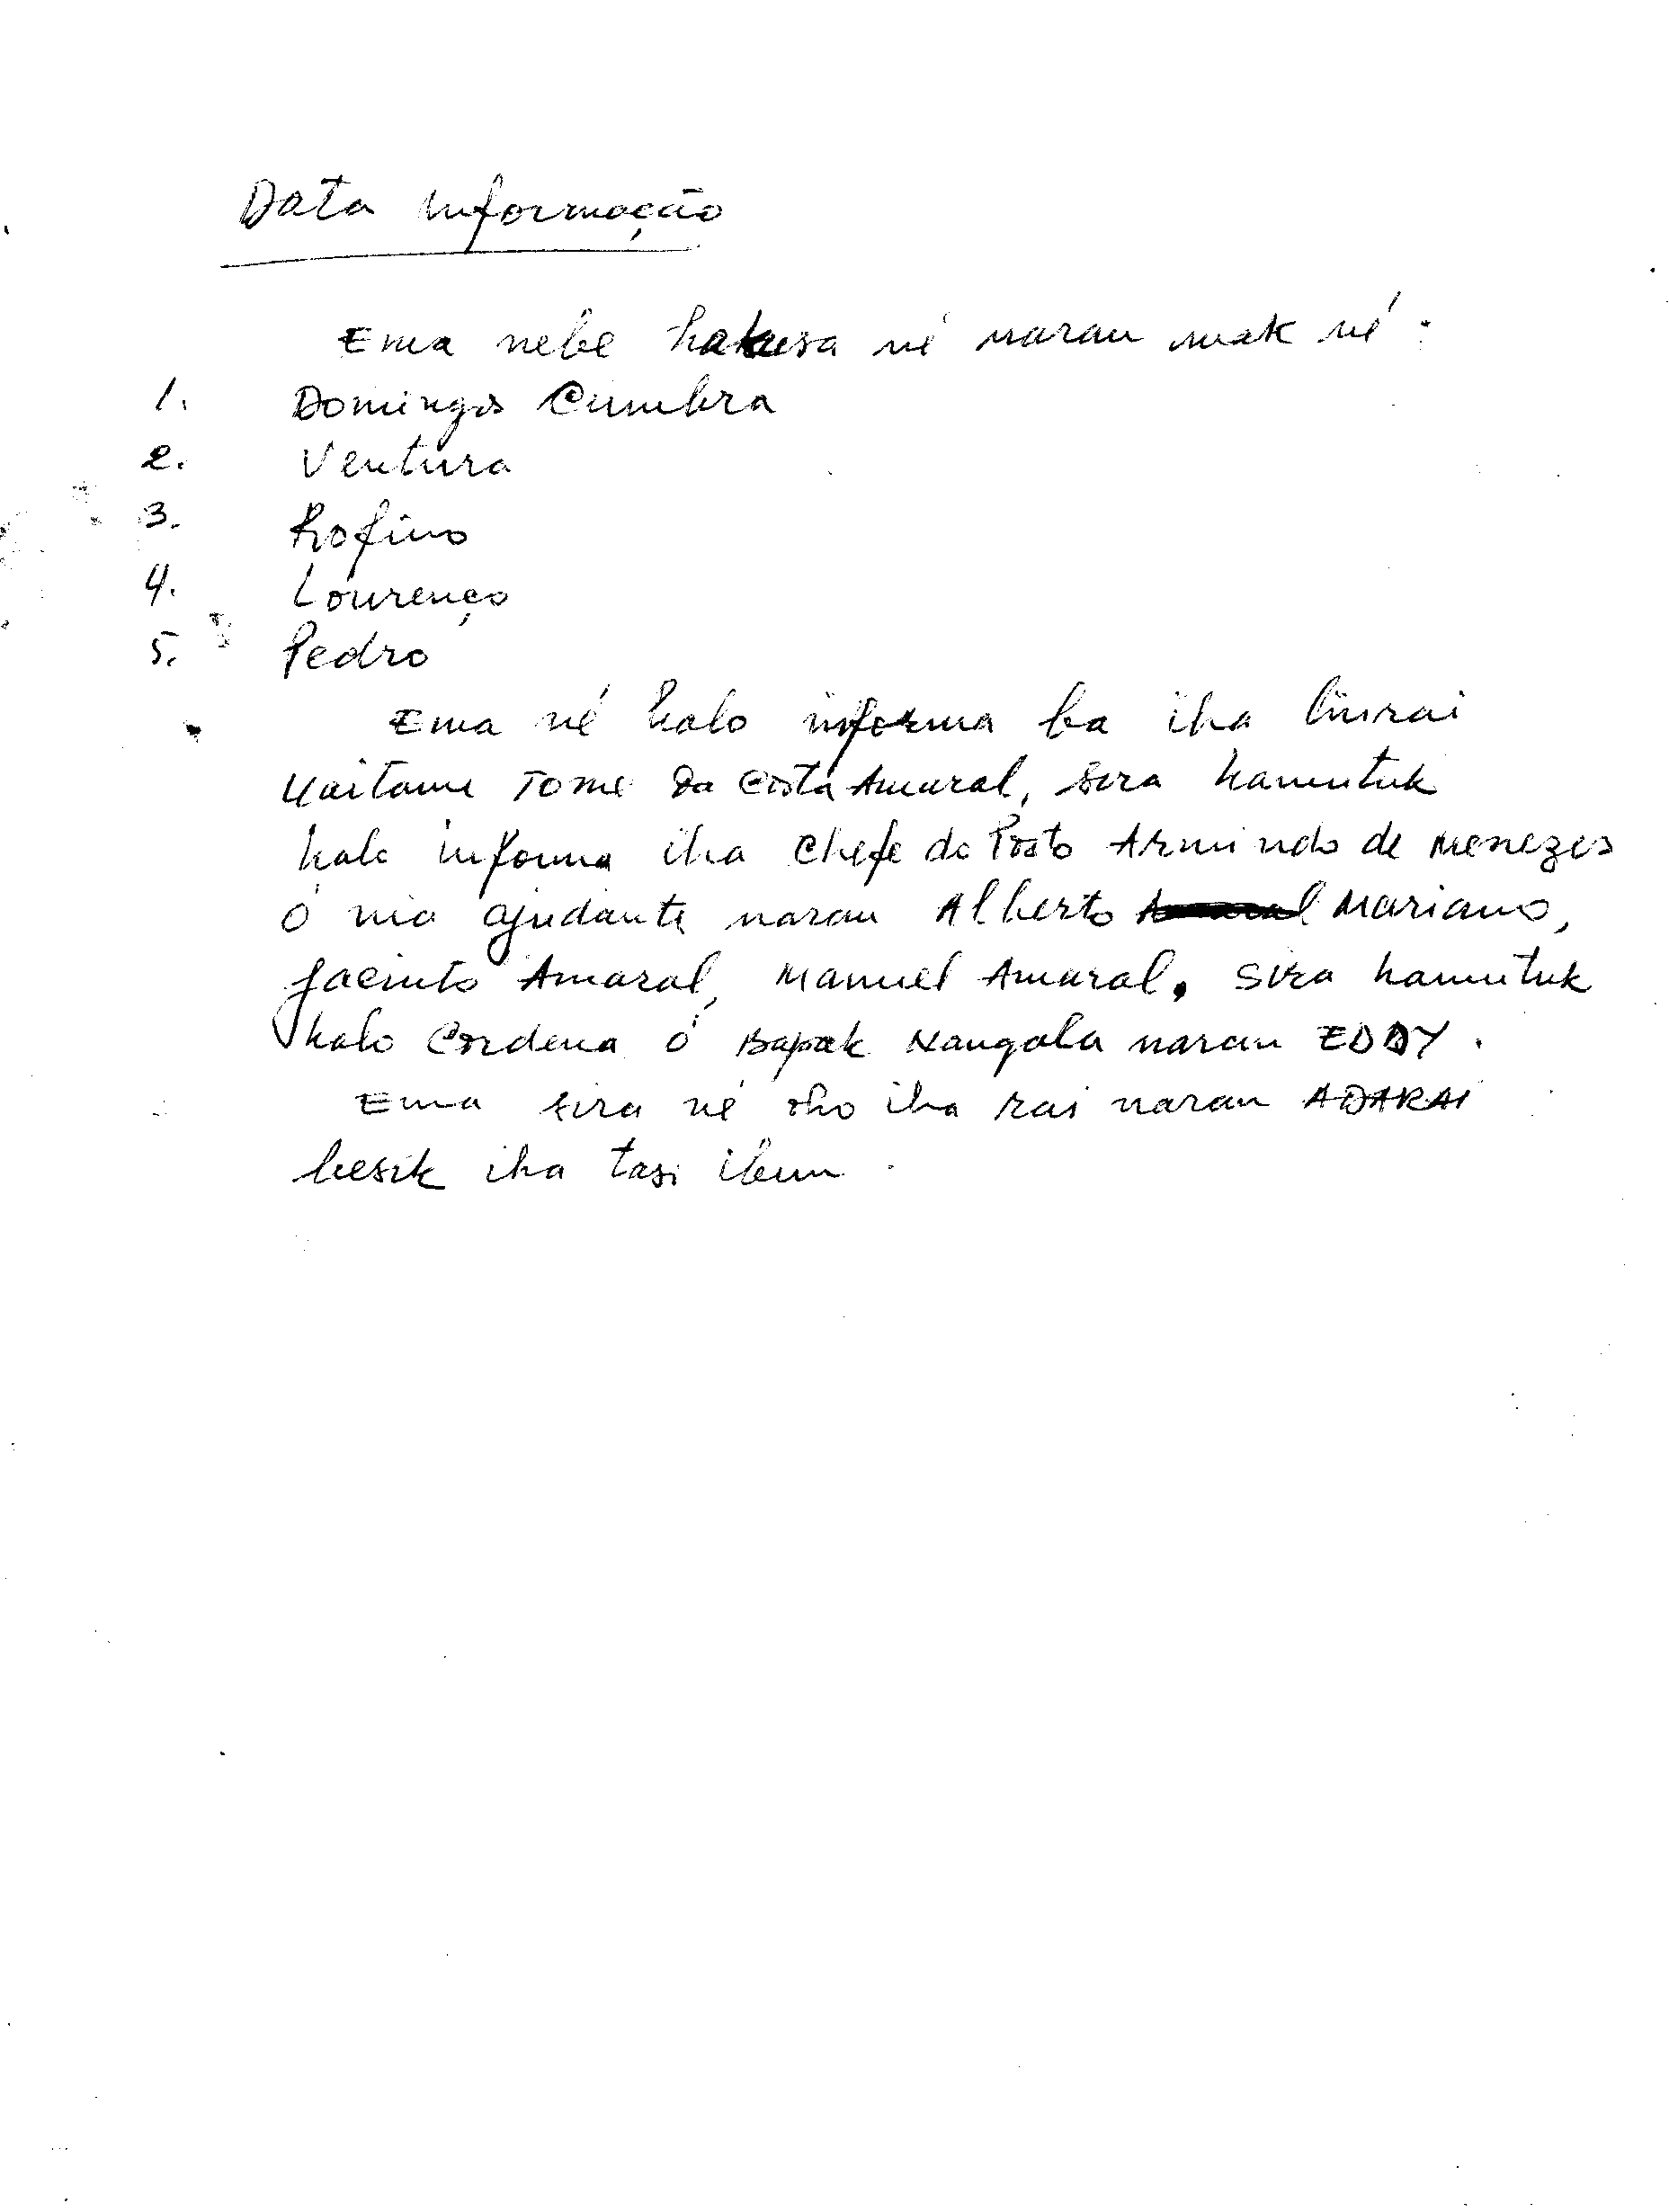 Data Informação
Ema nebe hakusa né naran mak né :
1. Domingos Cumbra
2. Ventura
3. Rofino
4. Lourenço
5. Pedro
Ema né halo informa ba iha liurai
Tome Da Costa Amaral, sira hamutuk
halo informa iha Chefe do Posto Armindo de Menezes
ó nia ajudante naran Alberto Mariano,
Jacinto Amaral, Manuel Amaral, sira hamutuk
halo Cordena ó Bapak Nangala naran EDDY .
Ema sira né oho iha rai naran ADARAI
besik iha tasi ibun .